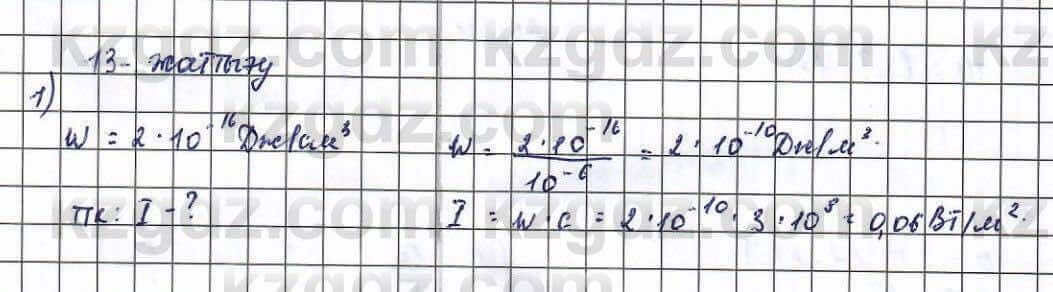 13- жаттығу
1)
w = 2·10⁻¹⁶Дж/см³ w = 2·10⁻¹⁶/10⁻⁶ = 2·10⁻¹⁰Дж/м³.
ТК: I -? I = w·c = 2·10⁻¹⁰·3·10⁸ = 0,06 Вт/м².
kzgdz.com kzgdz.com kz
kzgdz.com
kzgdz.com kzgdz.com kz